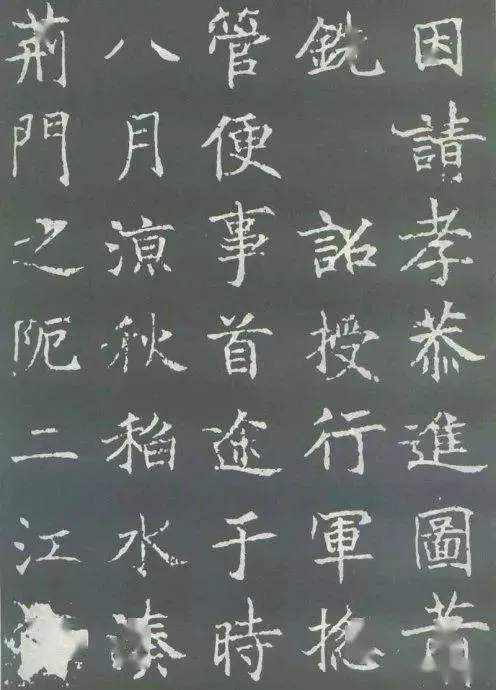 因請孝恭進圖
銑 詔授行軍揔
管便事首途于時
八月涼秋稻水湊
荆門之阨二江